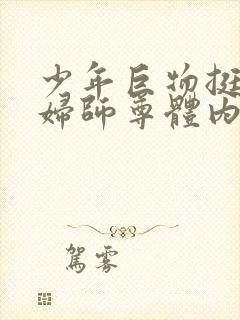 少年巨物挺
婦師尊體内
駕雾